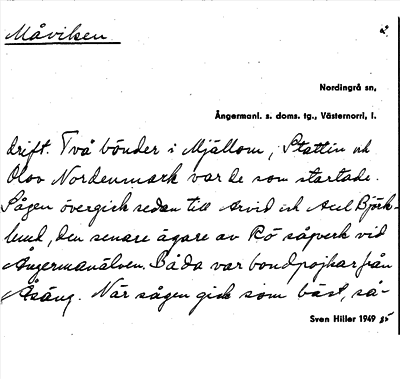 Måviken
2
Nordingrå sn,
Ångermanl. s. doms. tg., Västernorrl. l.
drift. Två bönder i Mjällom, Stattin och
Olov Nordenmark var de som startade.
Sågen övergick sedan till Arvid och Axel Björk-
lund, den senare ägare av Rö sågverk vid
Ångermanälven. Båda var bondpojkar från
Åsäng. När sågen gick som bäst, så-
Sven Hiller 1949